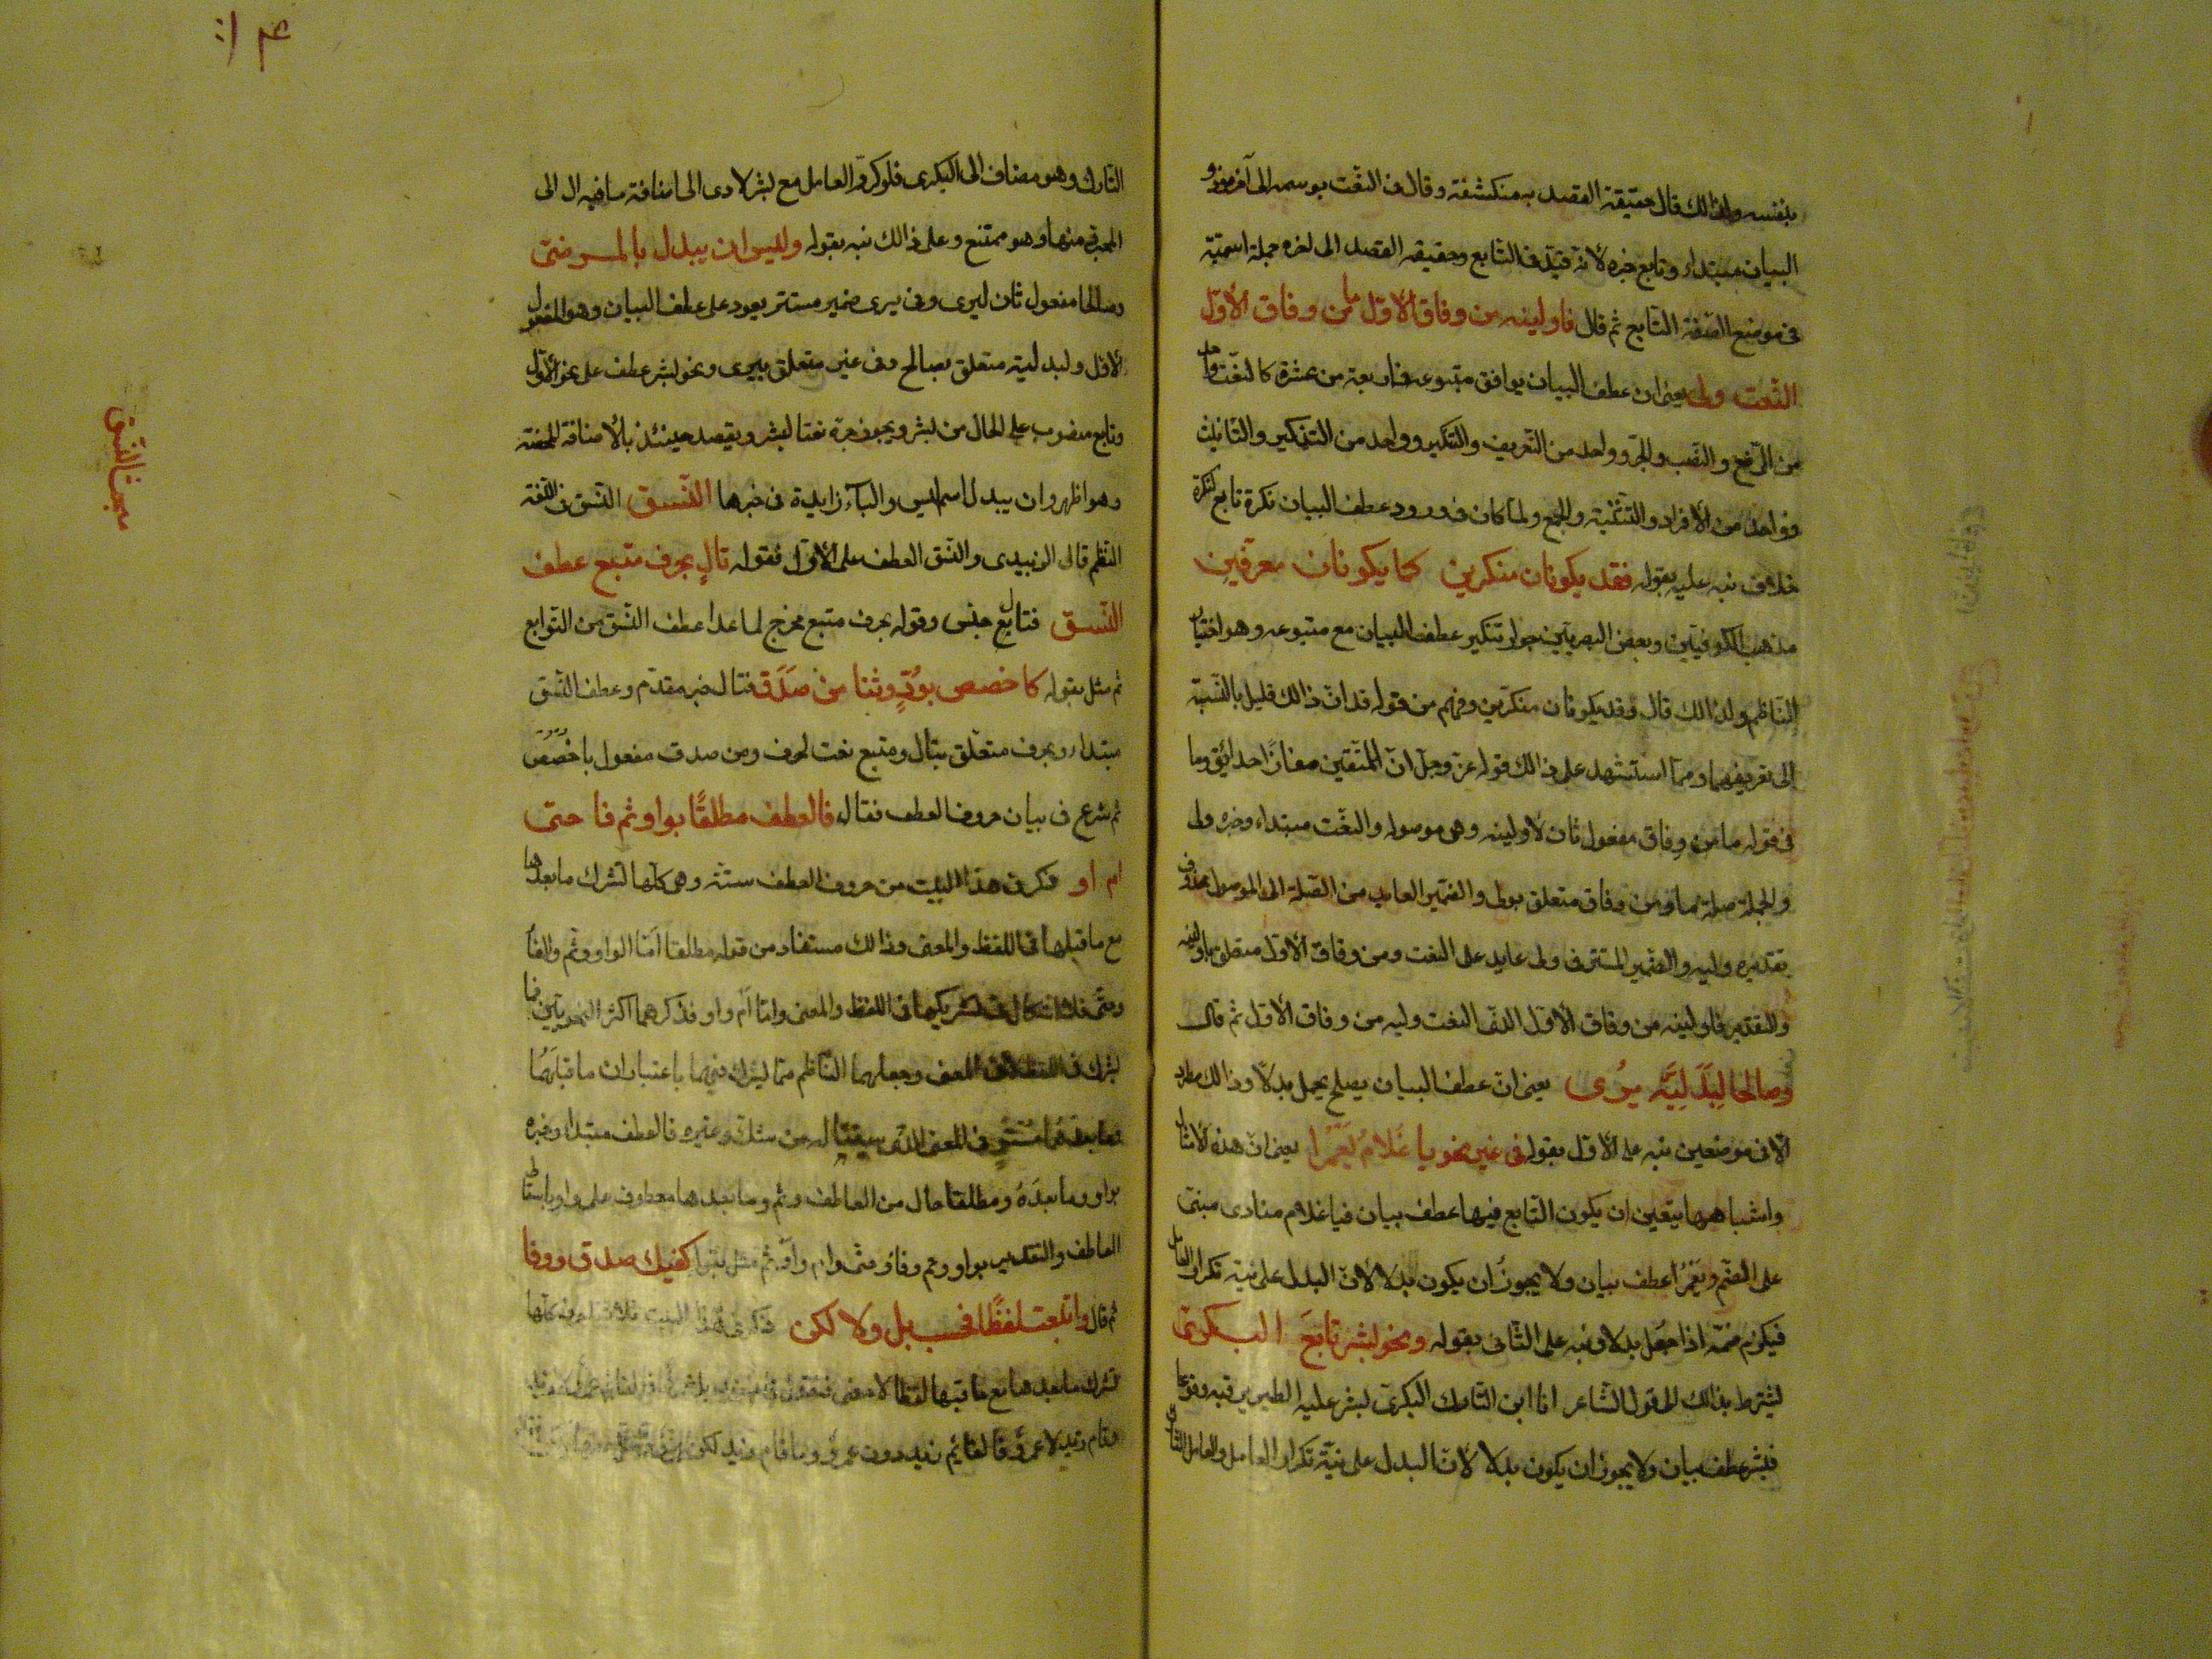 بنفسه ولذالك قال حقيقة القصد به منكشفة وقال في النعت بوسمه الى آخره و
البيان مبتداء وتابع خبره لانه قيد في التابع وحقيقة القصد الى اخره جملة اسمية
في موضع الصفة التابع ثم قال فاولينه من وفاق الأوّل ما من وفاق الأوّل
النّعت ولى يعنى ان عطف البيان يوافق متبوعه في اربعة من عشرة كالنعت واحد
من الرّفع والنّصب والجرّ وواحد من التعريف والتنكير وواحد من التذكير والتانيث
وواحد من الأفراد والتثنية والجمع ولما كان في ورود عطف البيان نكرة تابع لنكرة
خلاف نبه عليه بقوله فقد يكونان منكرين كما يكونان معرفين
مذهب الكوفيّين وبعض البصريّين جواز تنكير عطف البيان مع متبوعه وهو اختيار
النّاظم ولذالك قال فقد يكونان منكرين وفهم من قوله قد انّ ذالك قليل بالنّسبة
الى تعريفهما وممّا استشهد على ذالك قوله عزّ وجلّ انّ للمتّقين مفازًا حدائق وما
في قوله ما من وفاق مفعول ثان لاولينه وهى موصوله والنّعت مبتداء وخبره ولى
والجملة صلة ما ومن وفاق متعلق بولى والضمير العايد من الصّلة الى الموصول محذوف
تقديره وليه والضّمير المستتر في ولى عايد على النعت ومن وفاق الأوّل متعلق باولينه
والتقدير فاولينه من وفاق الأوّل الذى النعت وليه من وفاق الأوّل ثم قال
وصالحا لبدليّه يرى يعنى انّ عطف البيان يصلح يجعل بدلًا وذالك مطرد
الّا في موضعين نبه على الأوّل بقوله في غير نحو يا غلام يعمرا يعنى انّ هذه الأمثال
واشباهها يتعين ان يكون التّابع فيها عطف بيان فيا غلام منادى مبنى
على الضّم ويعمرا عطف بيان ولا يجوز ان يكون بدلا لانّ البدل على نية تكرار العامل
فيلزم ضمّه اذا جعل بدلا ونبه على الثّانى بقوله ونحو بشر تابع البكرىّ
ليشترط بذالك الى قول الشّاعر انا ابن التارك البكرىّ بشر عليه الطير ترقبه وقوعا
فبشر عطف بيان ولا يجوز ان يكون بدلا لانّ البدل على نيّة تكرار العامل والعامل التارك
التّارك وهو مضاف الى البكرى فلو كرّر العامل مع بشر لادى الى اضافة ما فيه ال الى
المجرّد منها وهو ممتنع وعلى ذالك نبه بقوله وليس ان يبدل بالمرضىّ
وصالحا مفعول ثان ليرى وفي يرى ضمير مستتر يعود على عطف البيان وهو المفعول
الاوّل ولبدليّة متعلق بصالح وفي غير متعلق بيرى ونحو بشر عطف على نحو الأوّل
وتابع منصوب على الحال من بشر ويجوز جره نعتا لبشر ويقصد حينئذ بالأضافة المحضة
وهو اظهر وان يبدل اسم ليس والبآء زايدة في خبرها النّسق النّسق في اللّغة
النّظم قال الزبيدى والنّسق العطف على الأوّل فقوله تالٍ بحرف متبع عطف
النّسق فتال جنس وقوله بحرف متبع مخرج لما عدا عطف النّسق من التوابع
ثم مثل بقوله كاخصص بودٍّ وثنا من صَدَق فتال خبر مقدّم وعطف النّسق
مبتداء وبحرف متعلّق بتال ومتبع نعت لحرف ومن صدق مفعول باخصص
ثم شرع في بيان حروف العطف فقال فالعطف مطلقًا بواو ثم فا حتى
ام او فذكر في هذا البيت من حروف العطف ستة وهى كلّها تشرك ما بعدها
مع ما قبلها في اللفظ والمعنى وذالك مستفاد من قوله مطلقا امّا الواو وثم والفآ
وحتّى فلا اشكال في تشريكها في اللفظ والمعنى وامّا أم واو فذكرهما اكثر النحويّين فيما
يشرك في اللفظ لا في المعنى وجعلهما النّاظم ممّا يشرك فيهما باعتبار ان ما قبلهما
وما بعدهما مستوٍ في المعنى من شكّ وغيره فالعطف مبتداء وخبره
بواو وما بعده ومطلقا حال من العاطف وثم وما بعدهما معطوف على واو باسقاط
العاطف والتقدير بواو وثم وفا وحتّى وام واو ثم مثل بقوله كفيك صدق ووفا
ثم قال واتبعت لفظًا فحسب بل ولا لكن
تشرك ما بعدها مع ما قبلها لفظا لا معنى
وقام زيد لا عمرو فالقائم زيد دون عمرو وما قام زيد لكن
مبحث النّسق